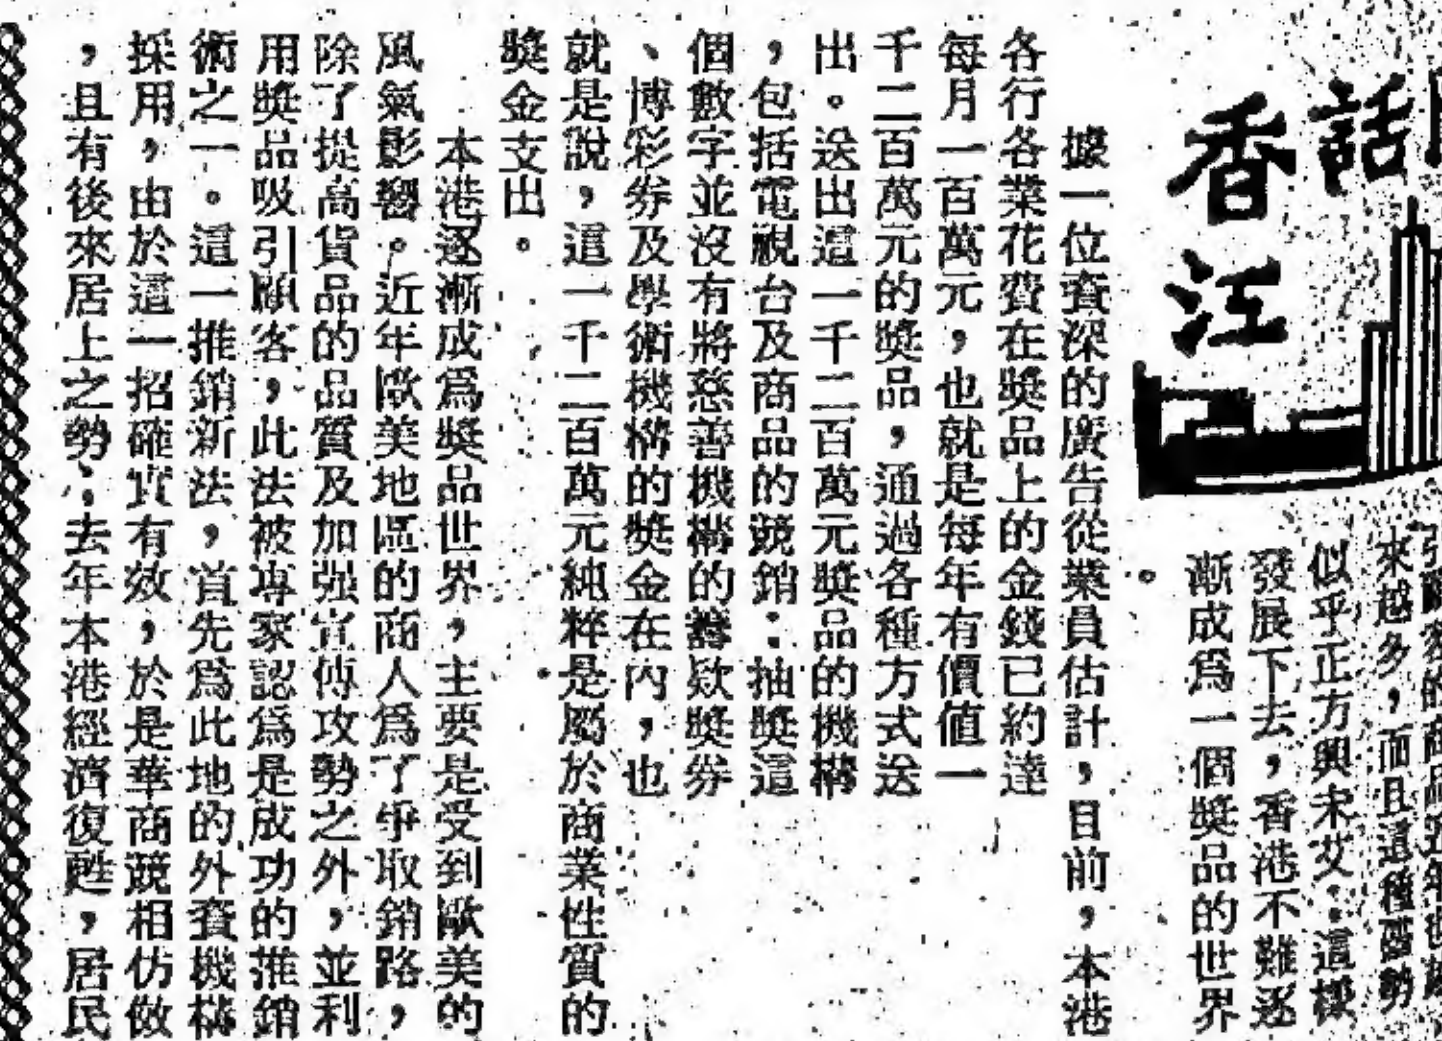 話
香江
來越多，而且這種聲勢
似乎正方興未艾：這樣
發展下去，香港不難逐
漸成爲一個獎品的世界
。
據一位資深的廣告從業員估計，目前，本港
各行各業花費在獎品上的金錢已約達
每月一百萬元，也就是每年有價值一
千二百萬元的獎品，通過各種方式送
出。送出這一千二百萬元獎品的機構
，包括電視台及商品的競銷：抽獎這
個數字並沒有將慈善機構的籌欵獎券
、博彩券及學術機構的獎金在內，也
就是說，這一千二百萬元純粹是屬於商業性質的
獎金支出。
本港逐漸成爲獎品世界，主要是受到歐美的
風氣影響。近年歐美地區的商人爲了爭取銷路，
除了提高貨品的品質及加强宣傳攻勢之外，並利
用獎品吸引顧客，此法被專家認爲是成功的推銷
術之一。這一推銷新法，首先爲此地的外資機構
採用，由於這一招確實有效，於是華商競相仿傚
，且有後來居上之勢；去年本港經濟復甦，居民